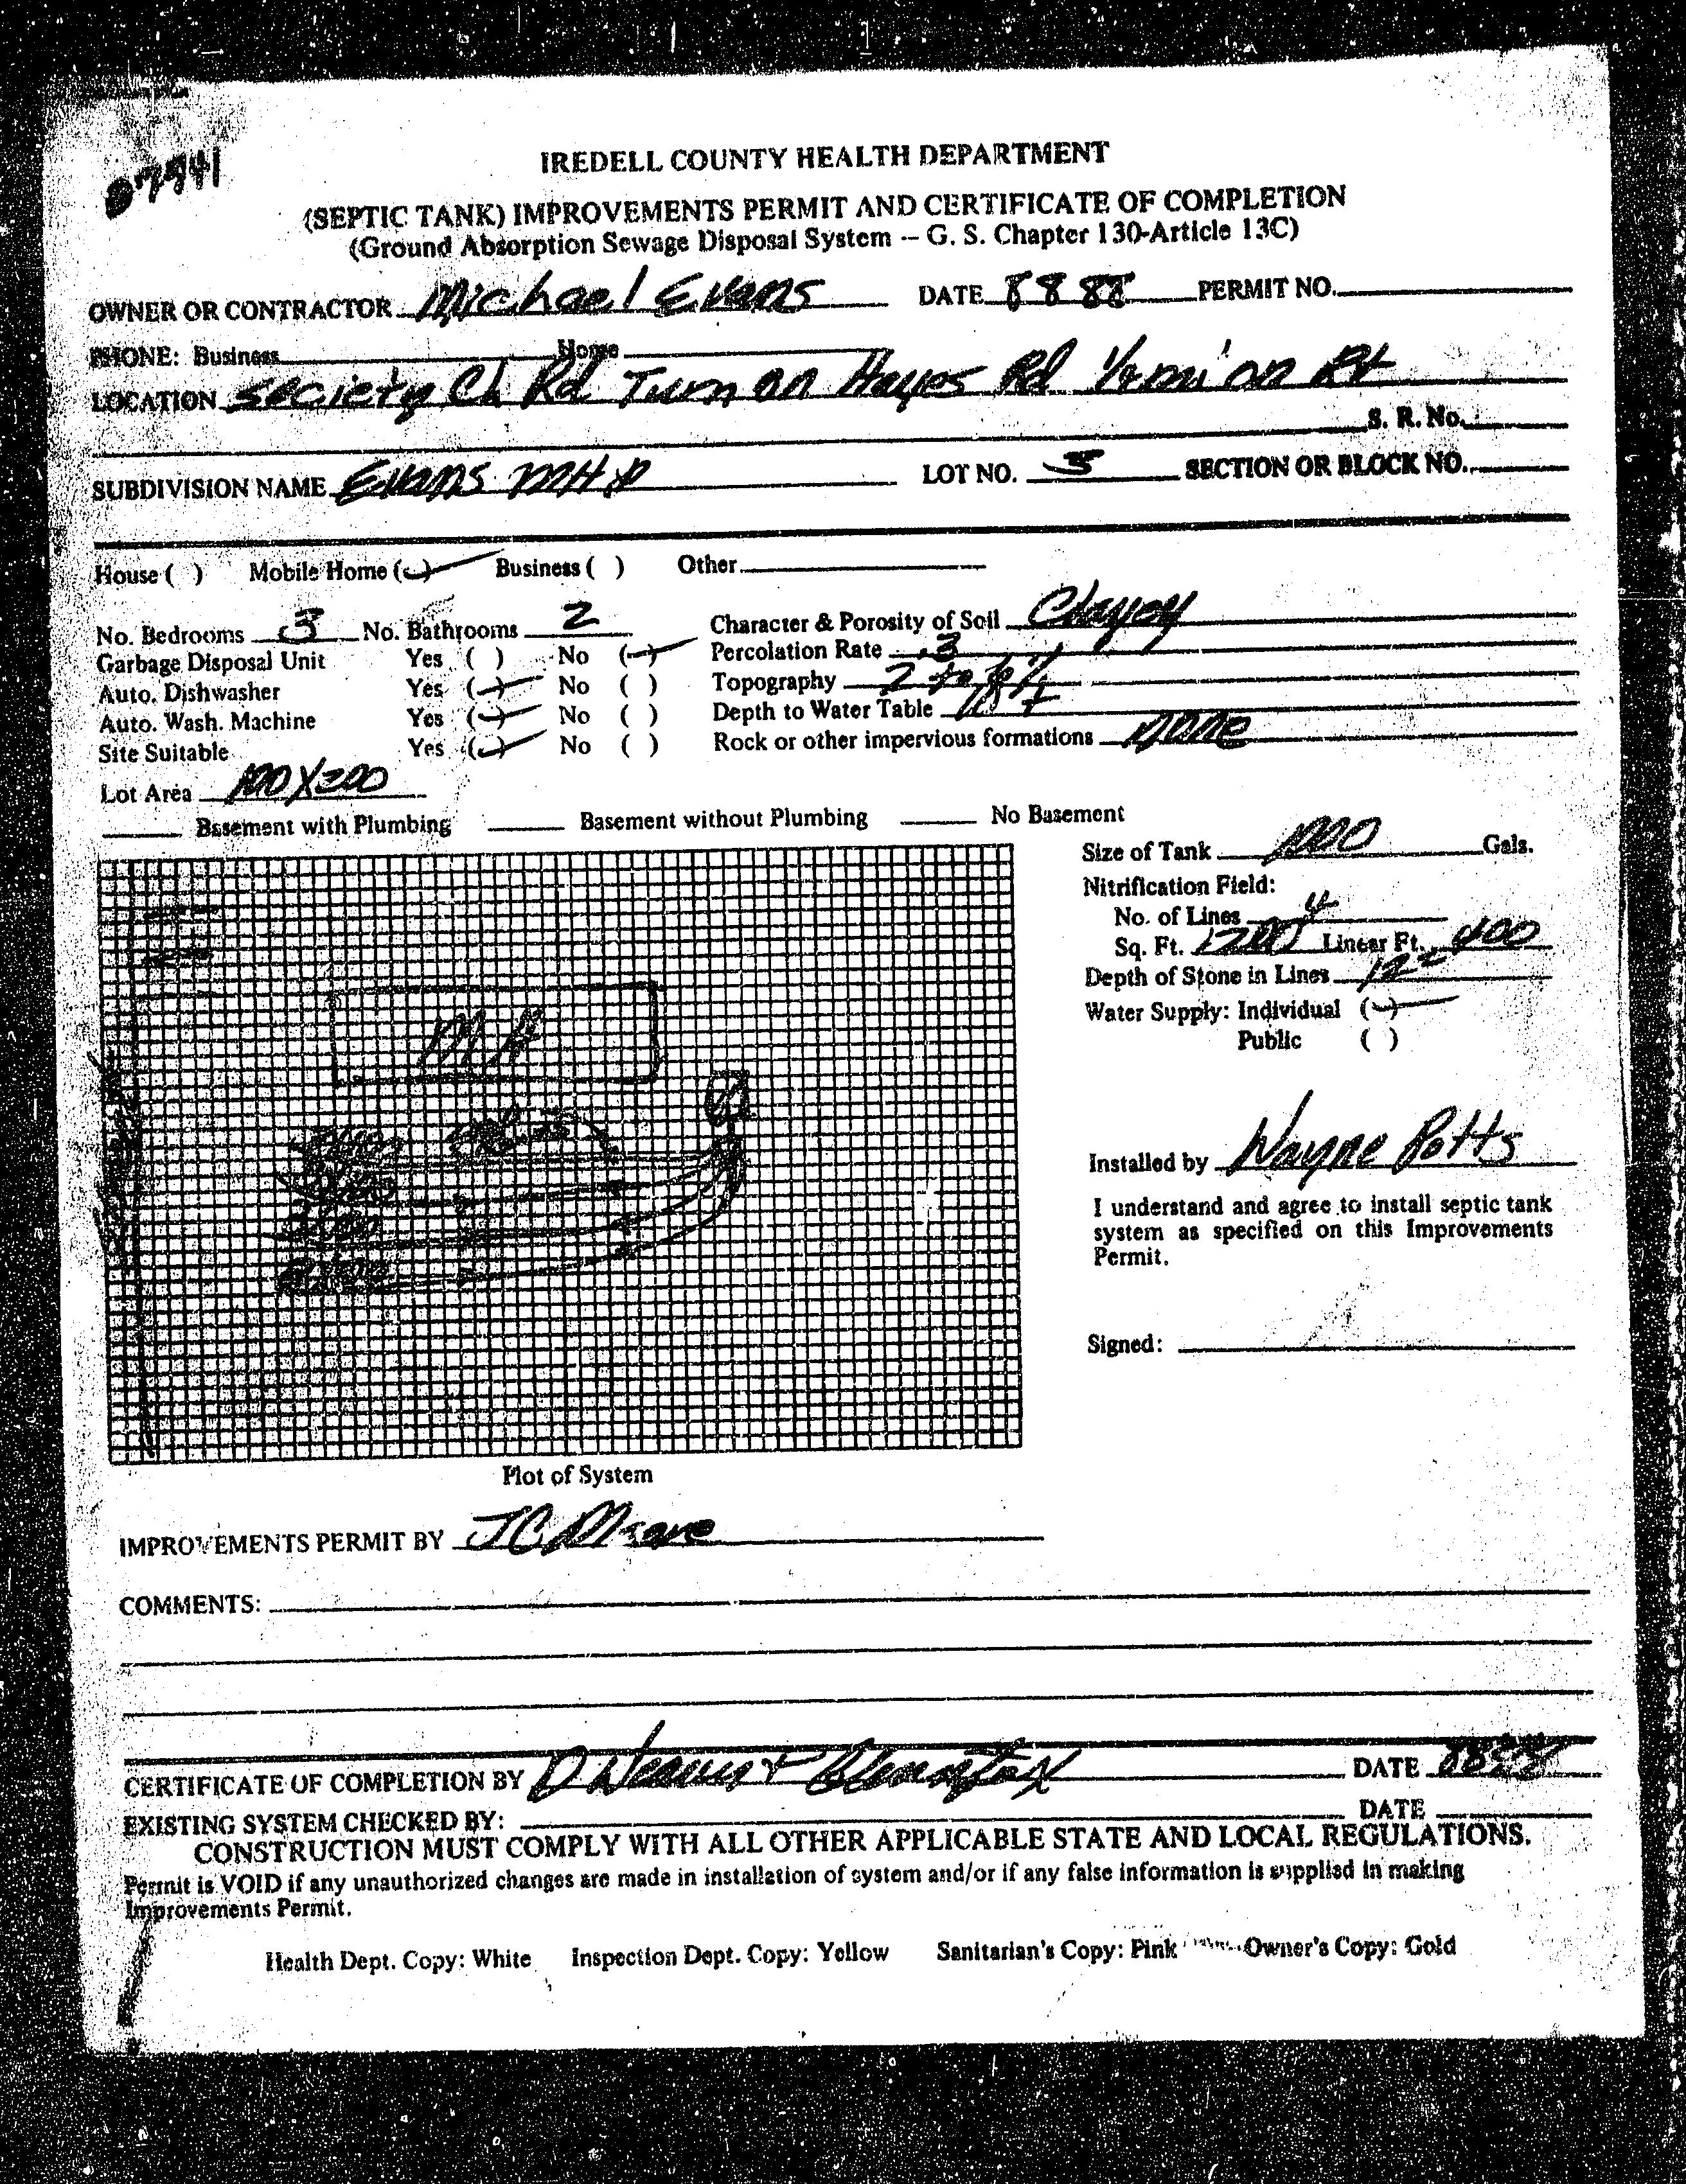 07941
IREDELL COUNTY HEALTH DEPARTMENT
(SEPTIC TANK) IMPROVEMENTS PERMIT AND CERTIFICATE OF COMPLETION
(Ground Absorption Sewage Disposal System -- G. S. Chapter 130-Article 13C)
OWNER OR CONTRACTOR Michael Evans DATE 8 8 88 PERMIT NO.
PHONE: Business Home
LOCATION Society Ch Rd Turn on Hayes Rd 1/4 mi on Rt
S. R. No.
SUBDIVISION NAME Evans MHP LOT NO. 5 SECTION OR BLOCK NO.
House ( ) Mobile Home (✓) Business ( ) Other
No. Bedrooms 3 No. Bathrooms 2 Character & Porosity of Soil Clayey
Garbage Disposal Unit Yes ( ) No (✓) Percolation Rate .3
Auto. Dishwasher Yes (✓) No ( ) Topography 2 to
Auto. Wash. Machine Yes (✓) No ( ) Depth to Water Table
Site Suitable Yes (✓) No ( ) Rock or other impervious formations none
Lot Area 100X200
Basement with Plumbing Basement without Plumbing No Basement
Size of Tank 1000 Gals.
Nitrification Field:
No. of Lines 4
Sq. Ft. 1200 Linear Ft. 400
Depth of Stone in Lines 12"
Water Supply: Individual (✓)
Public ( )
MH
Installed by Wayne Potts
I understand and agree to install septic tank
system as specified on this Improvements
Permit.
Signed:
Plot of System
IMPROVEMENTS PERMIT BY JC Moore
COMMENTS:
CERTIFICATE OF COMPLETION BY D Weaver + DATE
EXISTING SYSTEM CHECKED BY: DATE
CONSTRUCTION MUST COMPLY WITH ALL OTHER APPLICABLE STATE AND LOCAL REGULATIONS.
Permit is VOID if any unauthorized changes are made in installation of system and/or if any false information is supplied in making
Improvements Permit.
Health Dept. Copy: White Inspection Dept. Copy: Yellow Sanitarian's Copy: Pink Owner's Copy: Gold